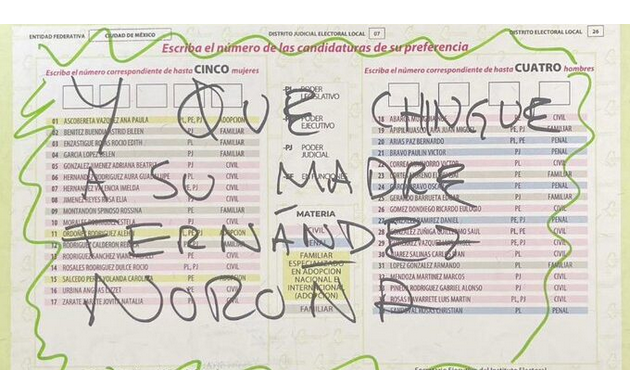 ENTIDAD FEDERATIVA CIUDAD DE MÉXICO DISTRITO JUDICIAL ELECTORAL LOCAL 07 DISTRITO ELECTORAL LOCAL 26
Escriba el número de las candidaturas de su preferencia
Escriba el número correspondiente de hasta CINCO mujeres
Escriba el número correspondiente de hasta CUATRO hombres
Y QUE CHINGUE
A SU MADRE
FERNÁNDEZ
NOROÑA
PODER
LEGISLATIVO
PODER
EJECUTIVO
PJ PODER
JUDICIAL
EF EN FUNCIONES
MATERIA
CIVIL
PENAL
FAMILIAR
ESPECIALIZADO
EN ADOPCION
NACIONAL E
INTERNACIONAL
(ADOPCION)
FAMILIAR
01 ASCOBERETA VAZQUEZ ANA PAULA PL, PE, PJ ADOPCION
02 BENITEZ BUENDIA ASTRID EILEEN PJ FAMILIAR
03 ROJAS ROCIO EDITH PL FAMILIAR
04 GARCIA LOPEZ BELEN PL FAMILIAR
05 GONZALEZ JIMENEZ ADRIANA BEATRIZ PL CIVIL
06 HERNANDEZ AURA GUADALUPE PE CIVIL
07 HERNANDEZ VALENCIA IMELDA PE, PJ CIVIL
08 JIMENEZ REYES ROSA ELIA PJ CIVIL
09 MONTANDON SPINOSO ROSSINA PE FAMILIAR
10 MORALES ESTELA PJ CIVIL
11 ORDOÑEZ RODRIGUEZ ADOPCION
12 RODRIGUEZ CALDERON FAMILIAR
13 RODRIGUEZ SANCHEZ CIVIL
14 ROSALES RODRIGUEZ DULCE ROCIO PL, PJ CIVIL
15 SALCEDO YOLANDA CAROLINA PE ADOPCION
16 URBINA LIZZET PE CIVIL
17 ZARATE JOVITA NATALIA PL CIVIL
18 ABARCA CIVIL
19 JUAN MIGUEL PE, PJ FAMILIAR
20 ARIAS PAZ BERNARDO PL, PE PENAL
21 BRAVO PAULIN VICTOR PJ PENAL
22 VICTOR PL CIVIL
23 FAMILIAR
24 PENAL
25 GERARDO BARRUETA FAMILIAR
26 GOMEZ DONDIEGO RICARDO EULOGIO PE CIVIL
27 RAMIREZ DANIEL PE, PJ PENAL
28 GONZALEZ ZUÑIGA GUILLERMO SAUL PL, PE CIVIL
29 VAZQUEZ CIVIL
30 SUAREZ SALINAS CARLOS CIVIL
31 LOPEZ GONZALEZ ARMANDO PL FAMILIAR
32 MENDOZA MARTINEZ MARCOS PJ CIVIL
33 PINEDA RODRIGUEZ GABRIEL ALONSO PJ CIVIL
ROSAS NAVARRETE LUIS MARTIN PL, PJ CIVIL
SANDOVAL CHRISTIAN PL PENAL